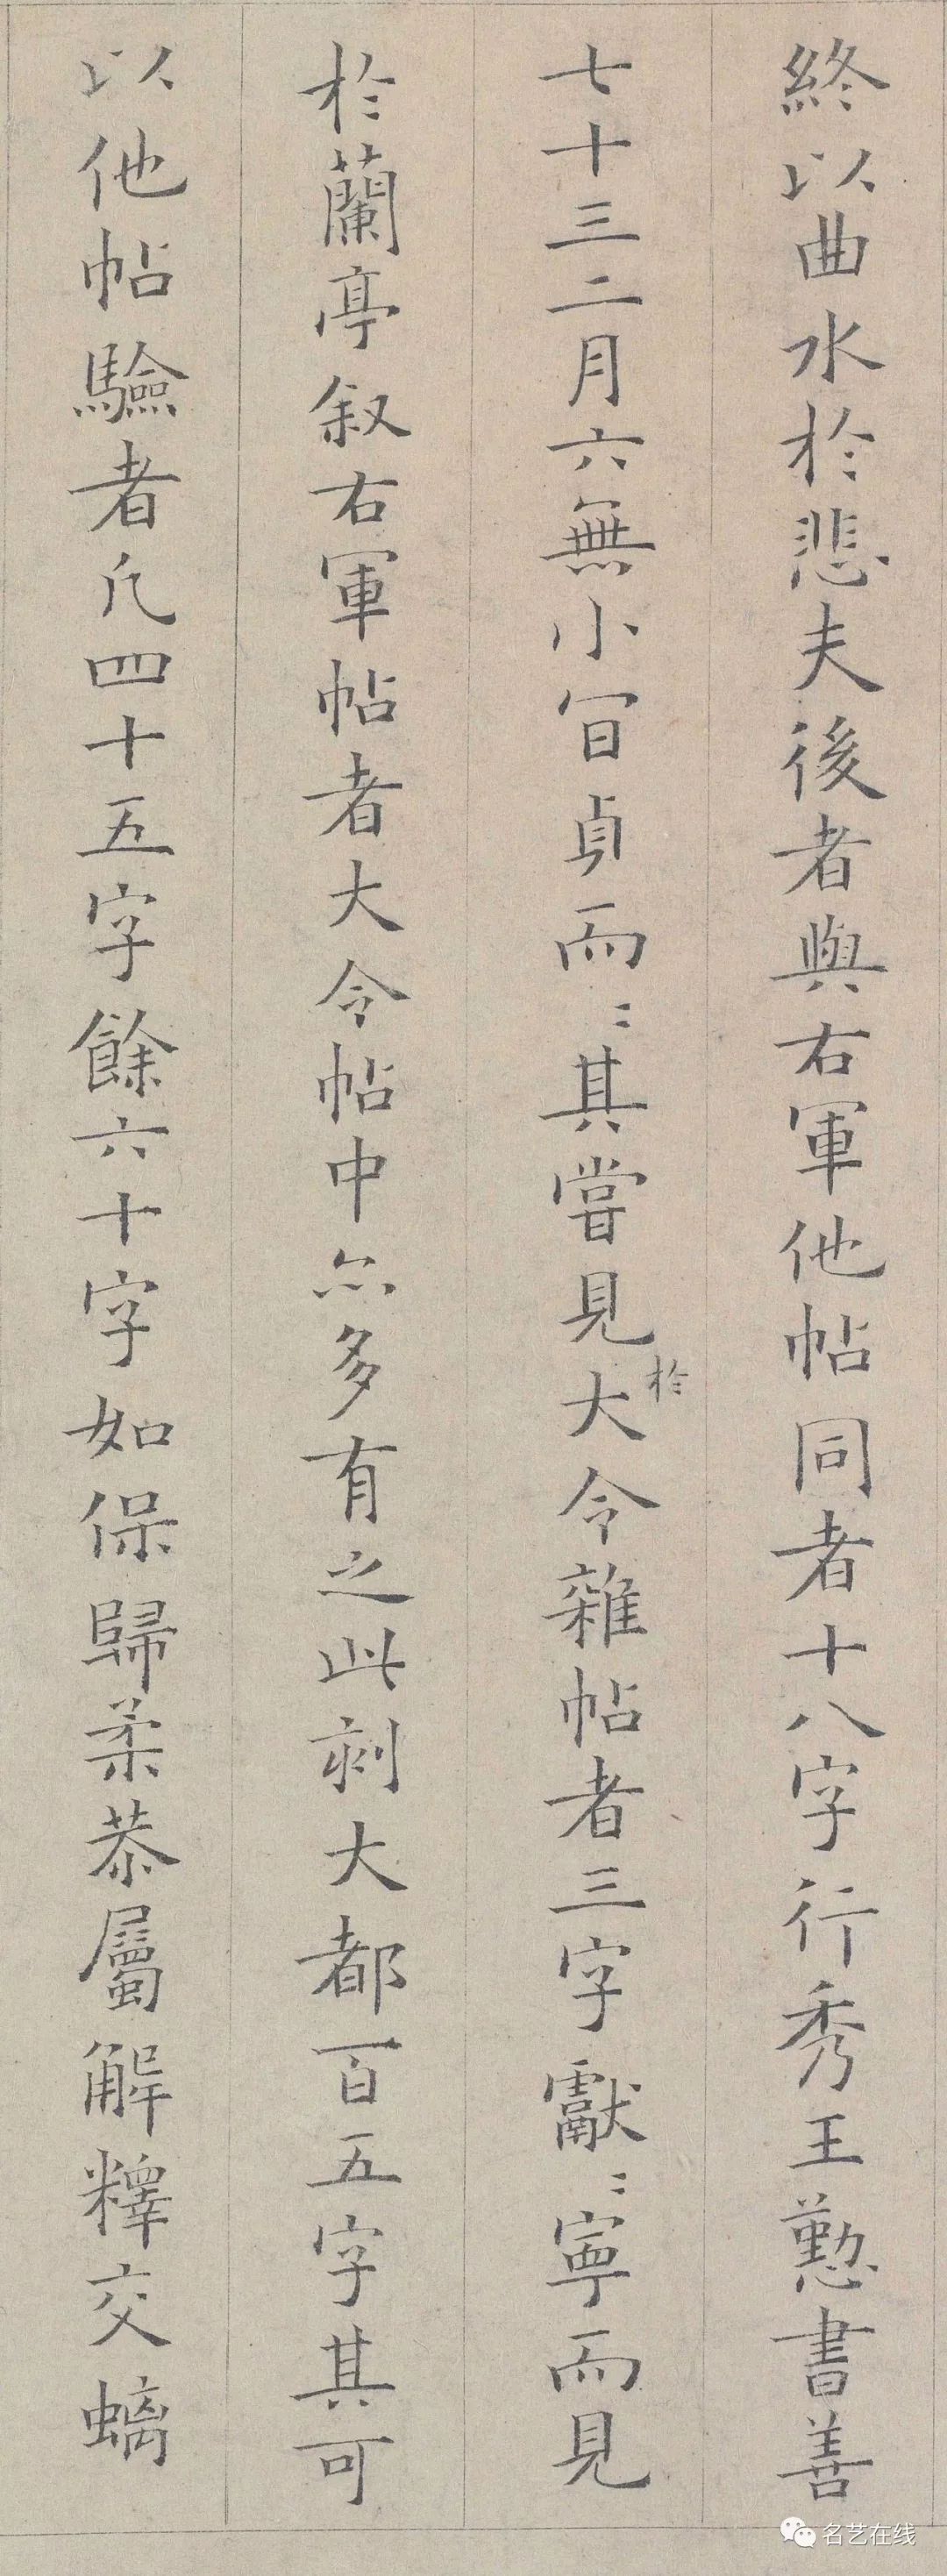 終以曲水於悲夫後者與右軍他帖同者十八字行秀王懃書善
七十三二月六無小冝貞而〻其嘗見於大令雜帖者三字獻〻寧而見
於蘭亭叙右軍帖者大令帖中亦多有之此刻大都百五字其可
以他帖驗者凡四十五字餘六十字如保歸柔恭屬解釋交螭
名艺在线